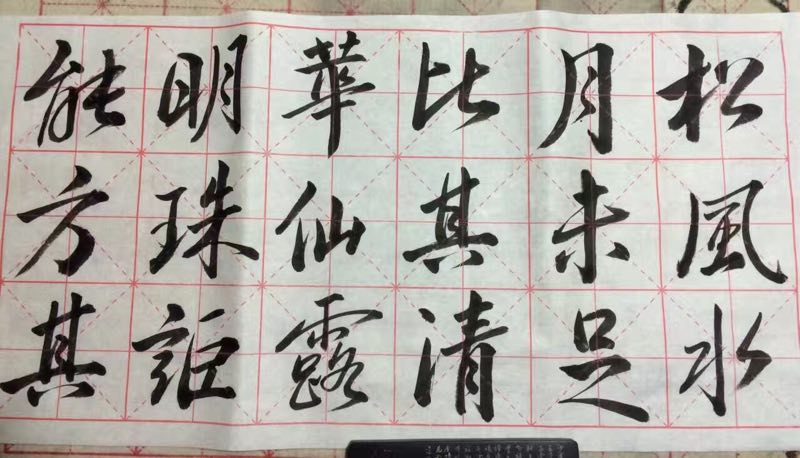 松風水
月未足
比其清
華仙露
明珠詎
能方其